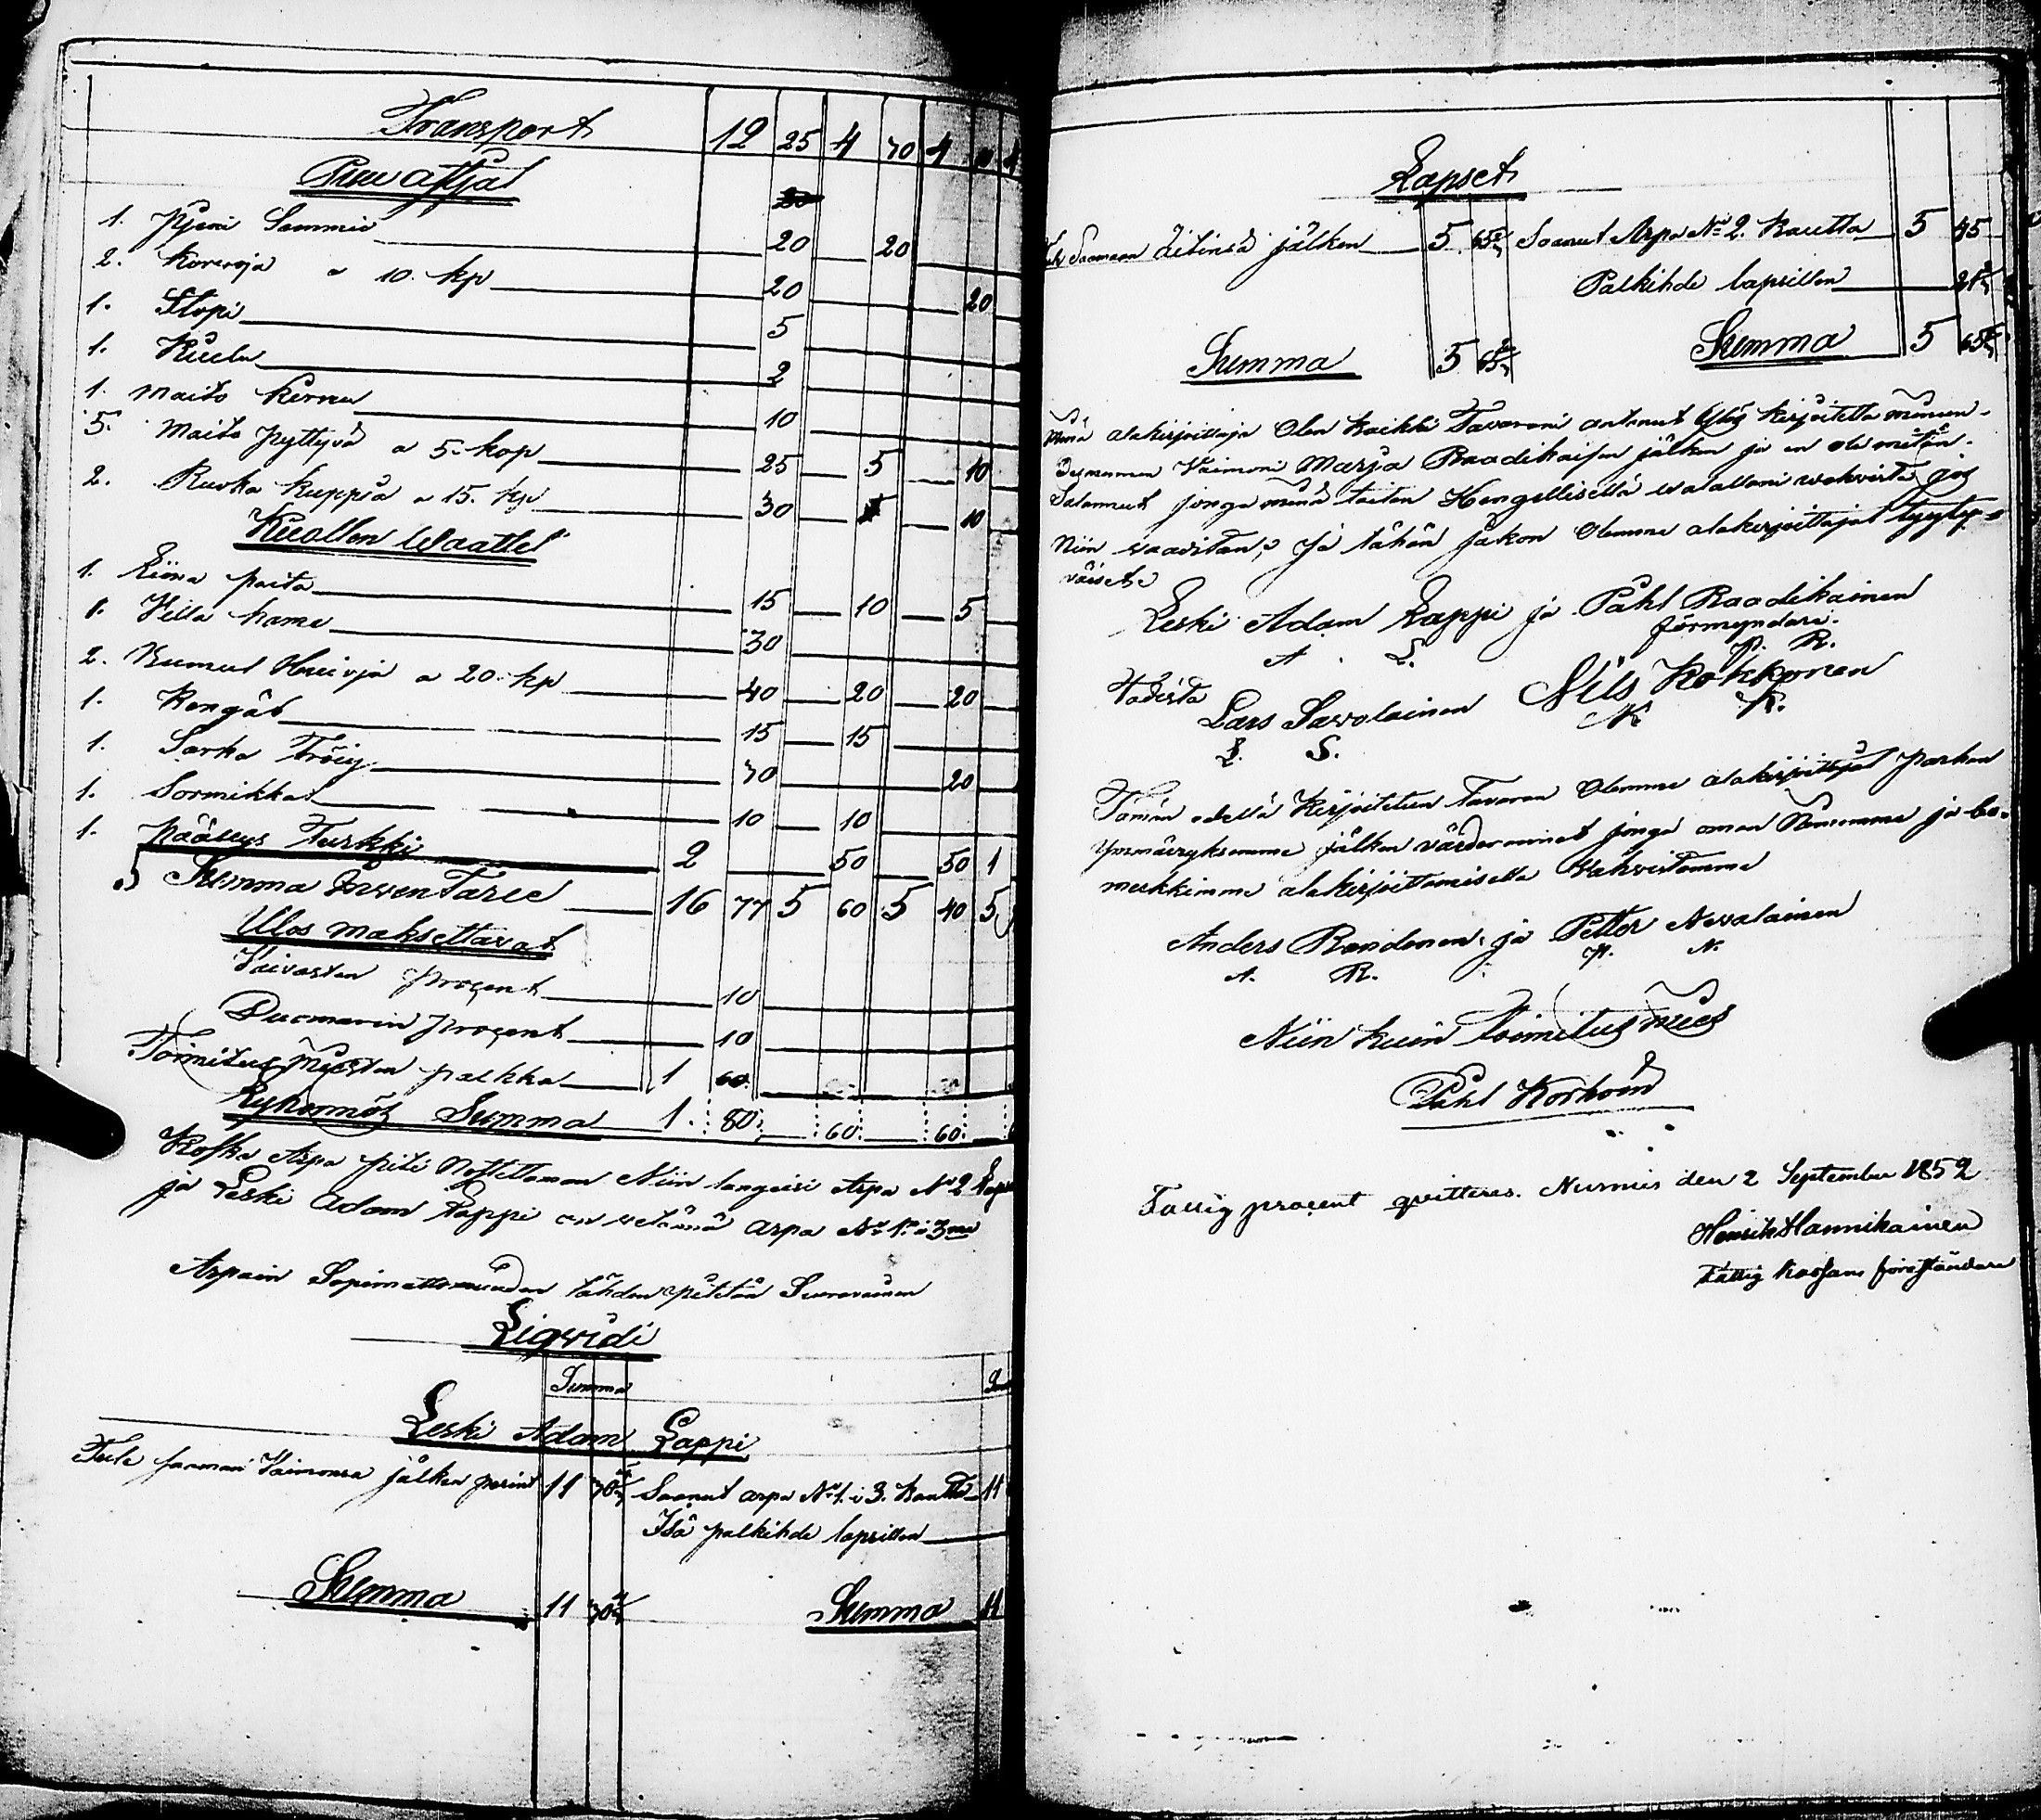 Transport 12 25 4 70 4
Puu astjat
1. Pjeni Sammio 20 20
2. Korvoja a 10. kp 20 20
1. Stopi 5
1. Kiulu 2
1. Maito Kirnu 10
5. Maito pyttyvä a 5. kop 25 5 10
2. Ruoka kuppia a 15. kp 30 10
Kuollen Waattet
1. Liina paita 15 10 5
1. Villa hame 30
2. Rumut Huivja a 20. kp 40 20 20
1. Kengät 15 15
1. Sarka Tröiy 70 20
1. Sormikkat 10 10
1. päälys Turkki 2 50 50 1
Summa InvenTaree 16 77 5 60 5 40 5
Ulos maksettavat
Vaivasten proçent 10
Duomarin proçent 10
Toimitus Miesten palkka 1 60
Ryhormös Summa 1. 80. 60. 60.
Koska Arpa piti Nostettaman Niin langeisi Arpa No 2
ja Leski Adam Lappi on vetännä Arpa No 1. i 3
Arpain Sopimattomuuden tähden pitetän Seuravainen
Liqvidi
Summa
Leski Adam Lappi
Tule saamani Vaimonsa jälken perint 11 70 Saanut arpa No 1. i 3. kautta 11
Isä palkihde lapsillen
Summa 11 70 Summa 11
Lapset
Saaman äitinsä jälken 5 65 Saanut Arpa No 2. Kautta 5 45
Palkihde lapsillen
Summa 5 65 Summa 5 65
Minä alakirjoittaja Olen kaikki Tavarani antanut Ylös kirjoitetta
Vaimoni Marja Raadikaisen jälken ja en ole mitän
Salannut jonga minä taitan Hengellisellä valallani vahvista jos
Niin vaaditan, Ja tähän jakon Olemme alakirjoittajat tyytyväisete
Leski Adam Lappi ja Påhl Raadikainen
förmyndare.
A. L. P. R.
Todista Lars Savolainen Nils Kokkonen
L. S. N. K.
Tämän edellä kirjoitetun tavaran Olemme alakirjoittajat parhan
Ymmärryksemme jälken värderannet jonga oman Nimemme ja bo-
merkkimme alakirjoittamisella Vahvistamme
Anders Rondonen, ja Petter Nevalainen
A. R. P. N.
Niin kuin toimitus mies
Påhl Korhoin
Fattig procent qvitteras. Nurmis den 2 September 1852
Henrik Hannikainen
Fattig Kassans föreståndare